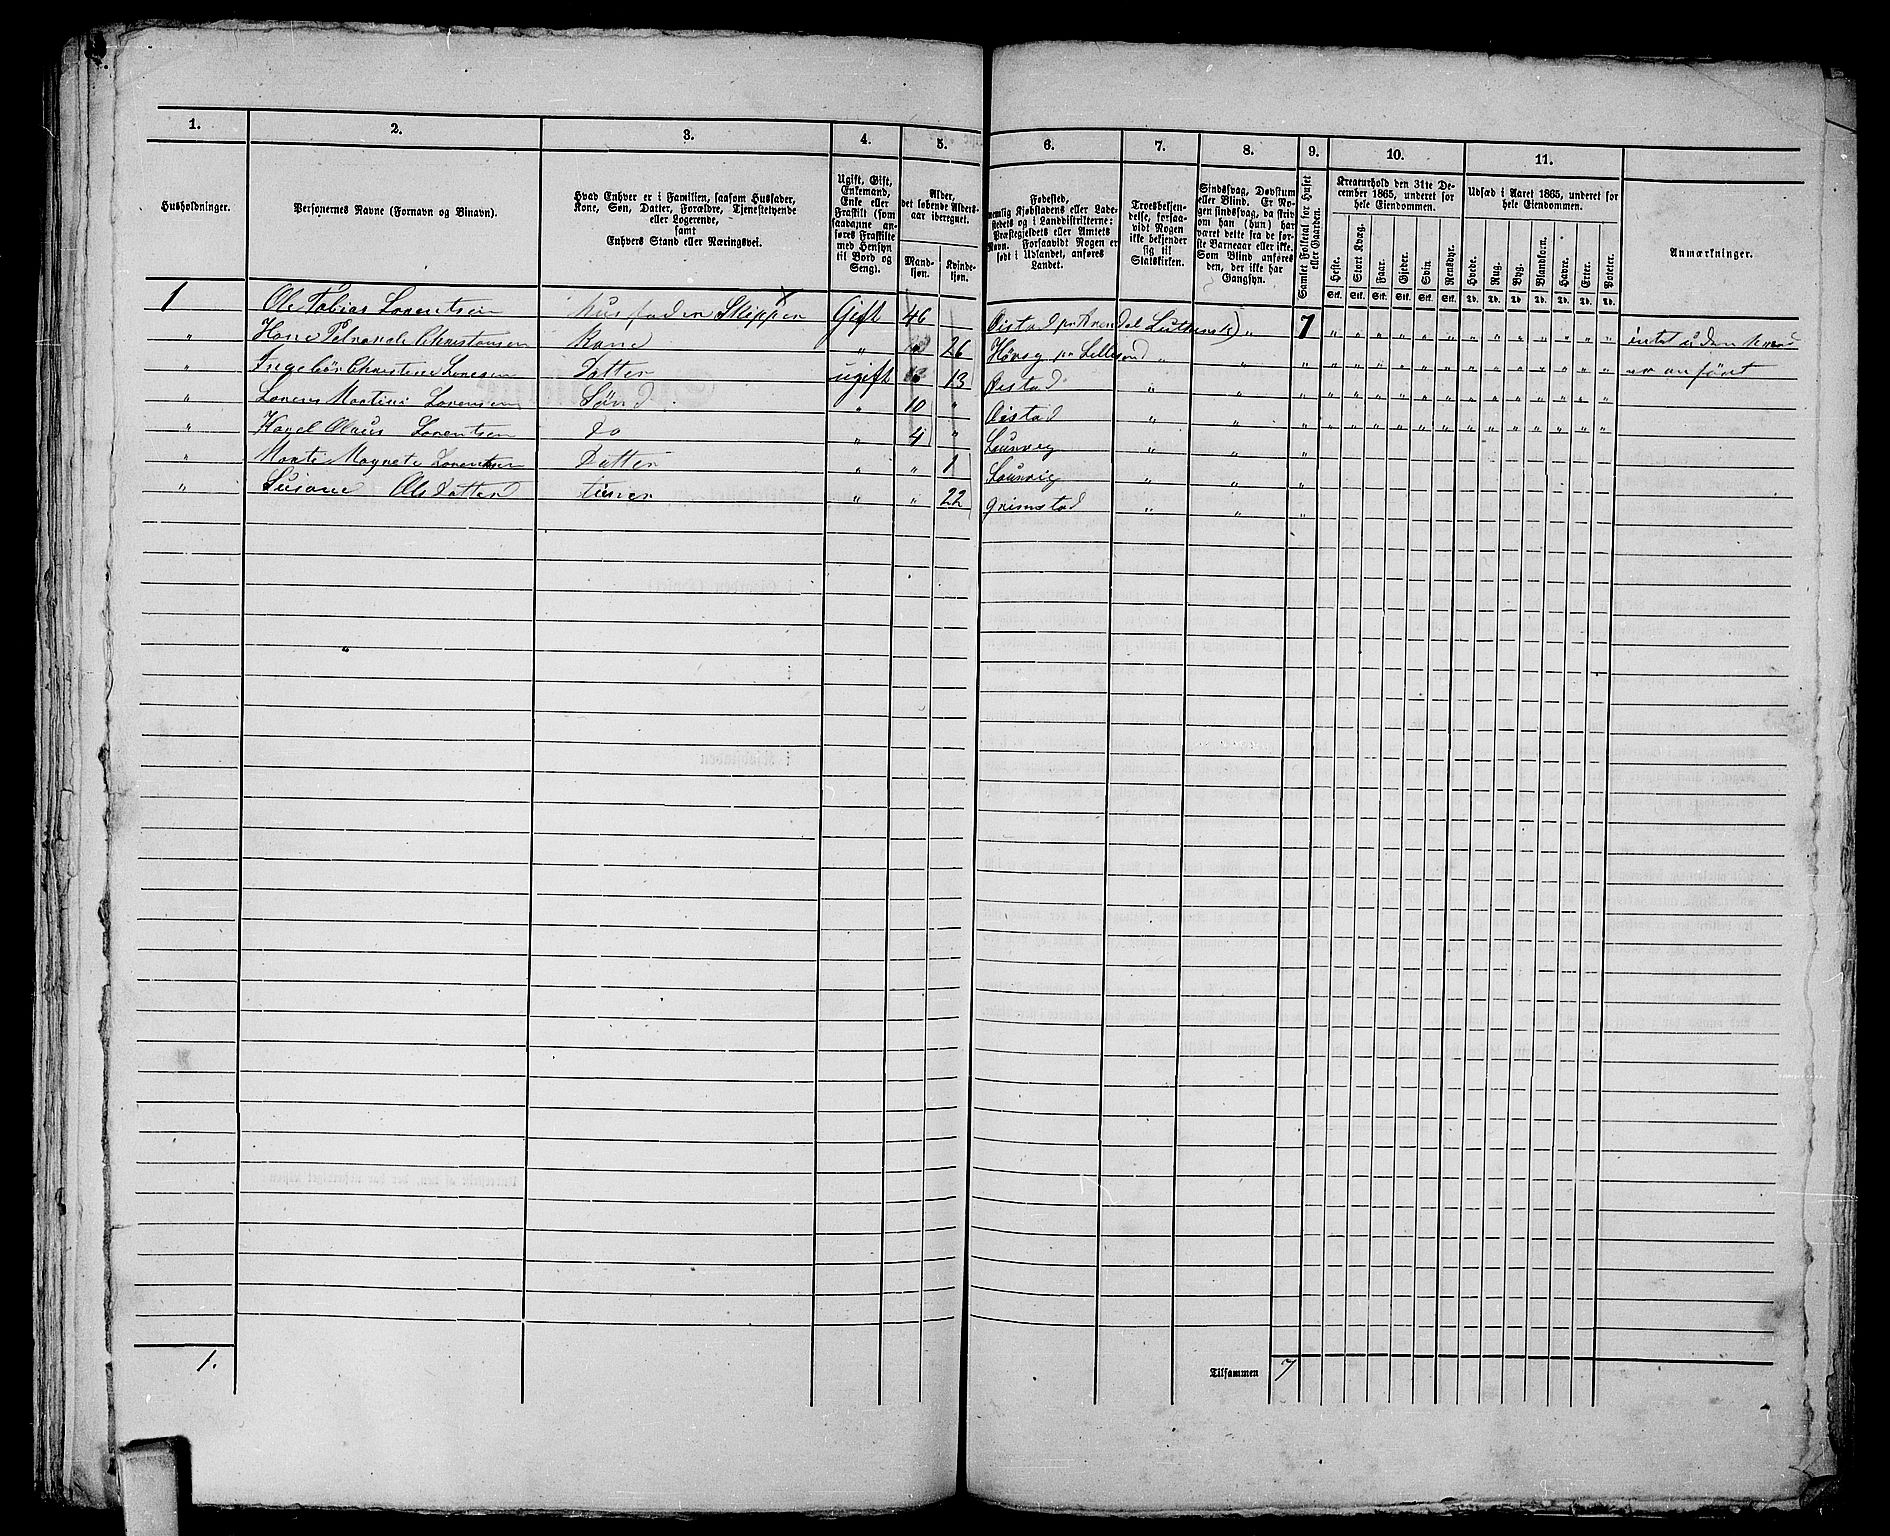 1. 2. 3. 4. 5. 6. 7. 8. 9. 10. 11.
Husholdninger.
Personernes Navne (Fornavn og Binavn).
Hvad Enhver er i Familien, saasom Husfader,
Kone, Søn, Datter, Forældre, Tjenestetyende
eller Logerende,
samt
Enhvers Stand eller Næringsvei.
Ugift, Gift,
Enkemand,
Enke eller
Fraskilt (som
saadanne an-
føres Fraskilte
med Hensyn
til Bord og
Seng).
Alder,
det løbende Alders-
aar iberegnet.
Mand-
kjøn.
Kvinde-
kjøn.
Fødested,
nemlig Kjøbstadens eller Lade-
stedets og i Landdistrikterne:
Præstegjeldets eller Amtets
Navn. Forsaavidt Nogen er
født i Udlandet, anføres
Landet.
Troesbekjen-
delse, forsaa-
vidt Nogen
ikke bekjender
sig til
Statskirken.
Sindssvag, Døvstum
eller Blind. Er No-
gen sindssvag, da skriv
om han (hun) har
været dette fra de før-
ste Barneaar eller ikke.
Som Blind anføres
den, der ikke har
Gangsyn.
Samlet Folketal for Huset
eller Gaarden.
Kreaturhold den 31te De-
cember 1865, underet for
hele Eiendommen.
Heste. Stort Kvæg. Faar. Gjeder. Svin Rensdyr.
Stk. Stk. Stk. Stk. Stk. Stk.
Udsæd i Aaret 1865, underet for
hele Eiendommen.
Hvede. Rug. Byg. Blandkorn. Havre. Erter. Poteter.
Td. Td. Td. Td. Td. Td. Td.
Anmærkninger.
1 Ole Tobias Lorentsen Husfader Skipper Gift 46 Øistad pr Arendal Luthersk) „ 7 „ „ „ „ „ „ „ „ „ „ „ „ „ intet uden hvad
„ Hane Petronele Christansen Kone „ 26 Høvog pr Lillesand „ „ „ „ „ „ „ „ „ „ „ „ „ „ er anført
„ Ingebör Christene Lorensen Datter ugift 13 Øistad „ „ „ „ „ „ „ „ „ „ „ „ „ „ „
„ Lorens Martini Lorensen Sønd „ 10 „ Øistad „ „ „ „ „ „ „ „ „ „ „ „ „ „ „
„ Karel Olaus Lorentsen do „ 4 „ Laurvig „ „ „
„ Marte Magrete Lorentsen Datter „ „ 1 Laurvig „ „ „
„ Susane Olsdatter tiener „ „ 22 Grimstad „ „ „
1. Tilsammen 7